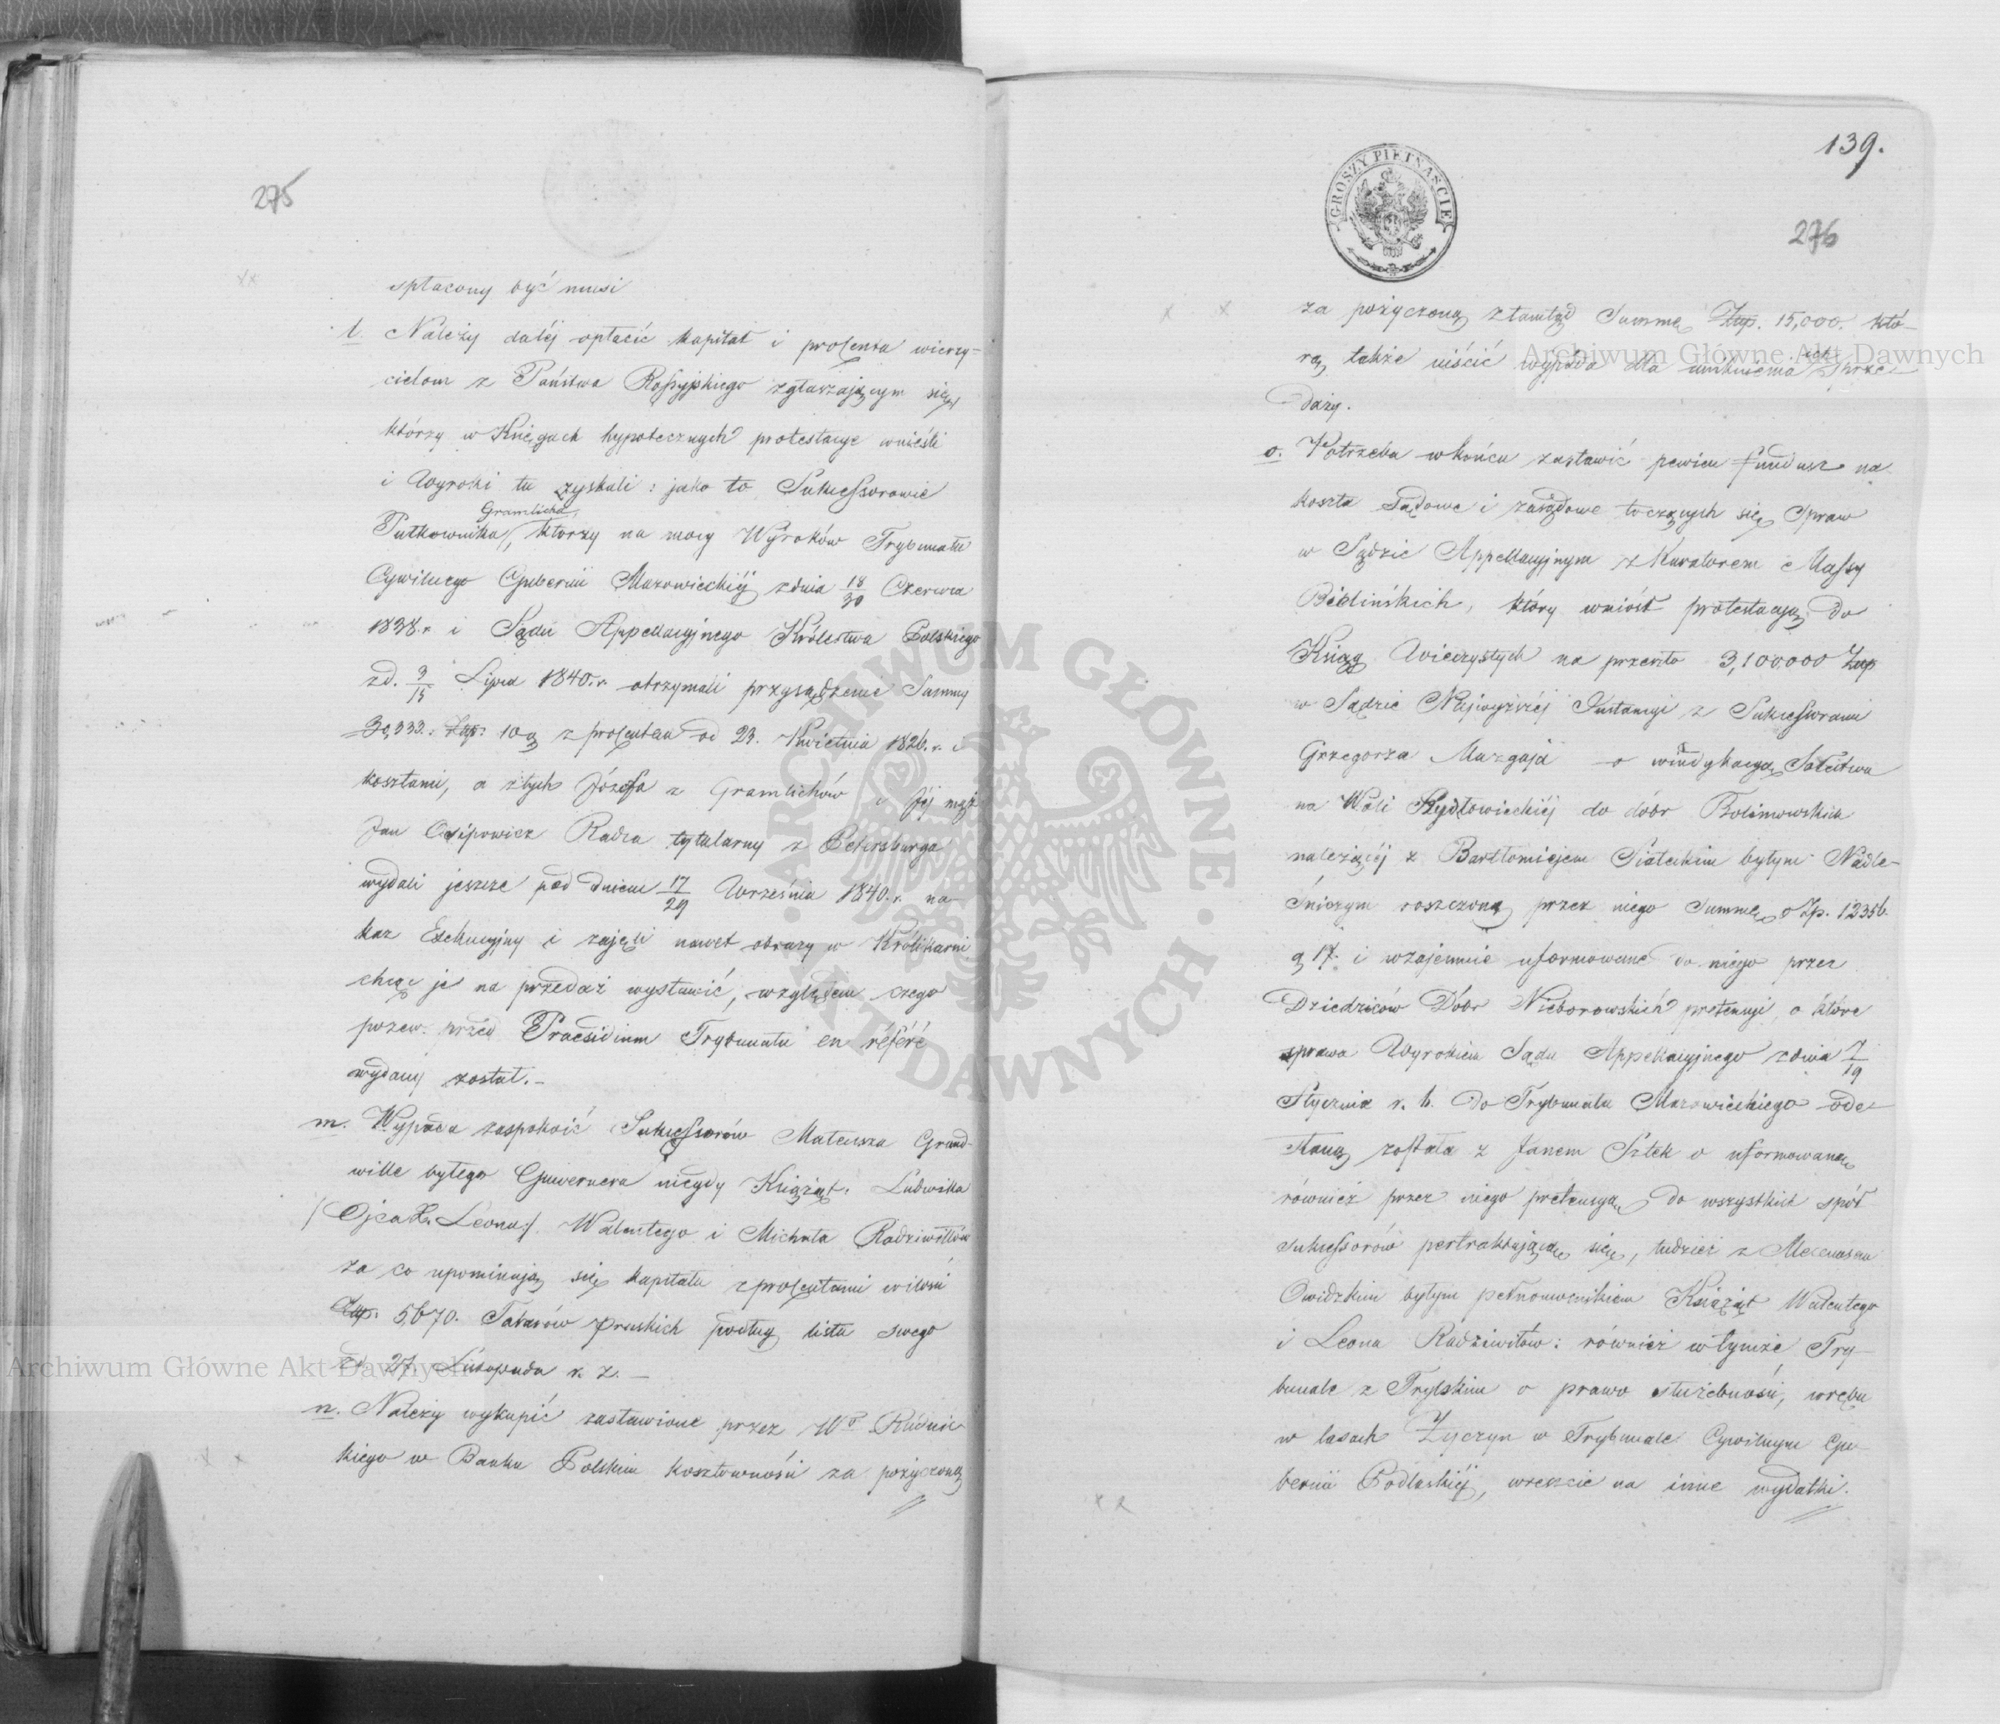 275
spłacony być musi
ł. Należy daléj opłacić kapitał i procenta wierzy-
cielom z Państwa Rossyjskiego zgłaszającym się,
którzy w Księgach hypotecznych protestacye wnieśli
i Wyroki tu zyskali: jako to Sukcessorowie
Gramlicha
Pułkownika, którzy na mocy Wyroków Trybunału
Cywilnego Gubernii Mazowieckiéj z dnia 18/30 Czerwca
1838. r. i Sądu Appellacyjnego Królestwa Polskiego
z d. 3/15 Lipca 1840. r. otrzymali przysądzenie Summy
30,333. Złp. 10 g z procentem od 23. Kwietnia 1826. r. i
kosztami, a z tych Józefa z Gramlichów i Jéj mąż
Jan Osipowicz Radca tytularny z Petersburga
wydali jeszcze pod dniem 17/29 Września 1840. r. na-
kaz Exekucyjny i zajęli nawet obrazy w Królikarni
chcąc je na przedaż wystawić, względem czego
pozew przed Praesidium Trybunału en référé
wydany został. –
m. Wypada zaspokoić Sukcessorów Mateusza Grand-
wille byłego Guwernera niegdy Książąt: Ludwika
/Ojca X. Leona/. Walentego i Michała Radziwiłłów
za co upominają się kapitału z procentami w ilości
Złp. 5,670. Talarów pruskich podług listu swego
z d. 27 Listopada r. z. –
n. Należy wykupić zastawione przez Wo Rudnic-
kiego w Banku Polskim kosztowności za pożyczoną
139.
GROSZY PIĘTNAŚCIE
276
za pożyczoną ztamtąd Summę Złp. 15,000. któ-
rą także uiścić wypada dla uniknienia ich sprze-
daży.
o. Potrzeba w końcu zostawić pewien fundusz na
koszta Sądowe i zasądowe toczących się Spraw
w Sądzie Appellacyjnym z Kuratorem Massy
Bielińskich, który wniósł protestacyą do
Ksiąg Wieczystych na przeszło 3,100000 Złp
w Sądzie Najwyższéj Instancyi z Sukcessorami
Grzegorza Mazgaja o windykacyą Sołectwa
na Woli Szydłowieckiéj do dóbr Bolimowskich
należącéj z Bartłomiejem Siateckim byłym Nadle-
śniczym roszczoną przez niego Summę o Złp. 12356.
g 17. i wzajemnie uformowane do niego przez
Dziedziców Dóbr Nieborowskich pretensyi, o które
sprawa Wyrokiem Sądu Appellacyjnego z dnia 7/19
Stycznia r. b. do Trybunału Mazowieckiego ode-
słaną została z Janem Sztek o uformowaną
również przez niego pretensyą do wszystkich spół
sukcessorów pertraktującą się, tudzież z Mecenasem
Owidzkim byłym pełnomocnikiem Książąt Walentego
i Leona Radziwiłłów: również w tymże Try-
bunale z Trylskim o prawo służebności, wrębu
w lasach Życzyn w Trybunale Cywilnym Gu-
bernii Podlaskiéj, wreszcie na inne wydatki.
Archiwum Główne Akt Dawnych
Archiwum Główne Akt Dawnych
ARCHIWUM GŁÓWNE · AKT DAWNYCH ·